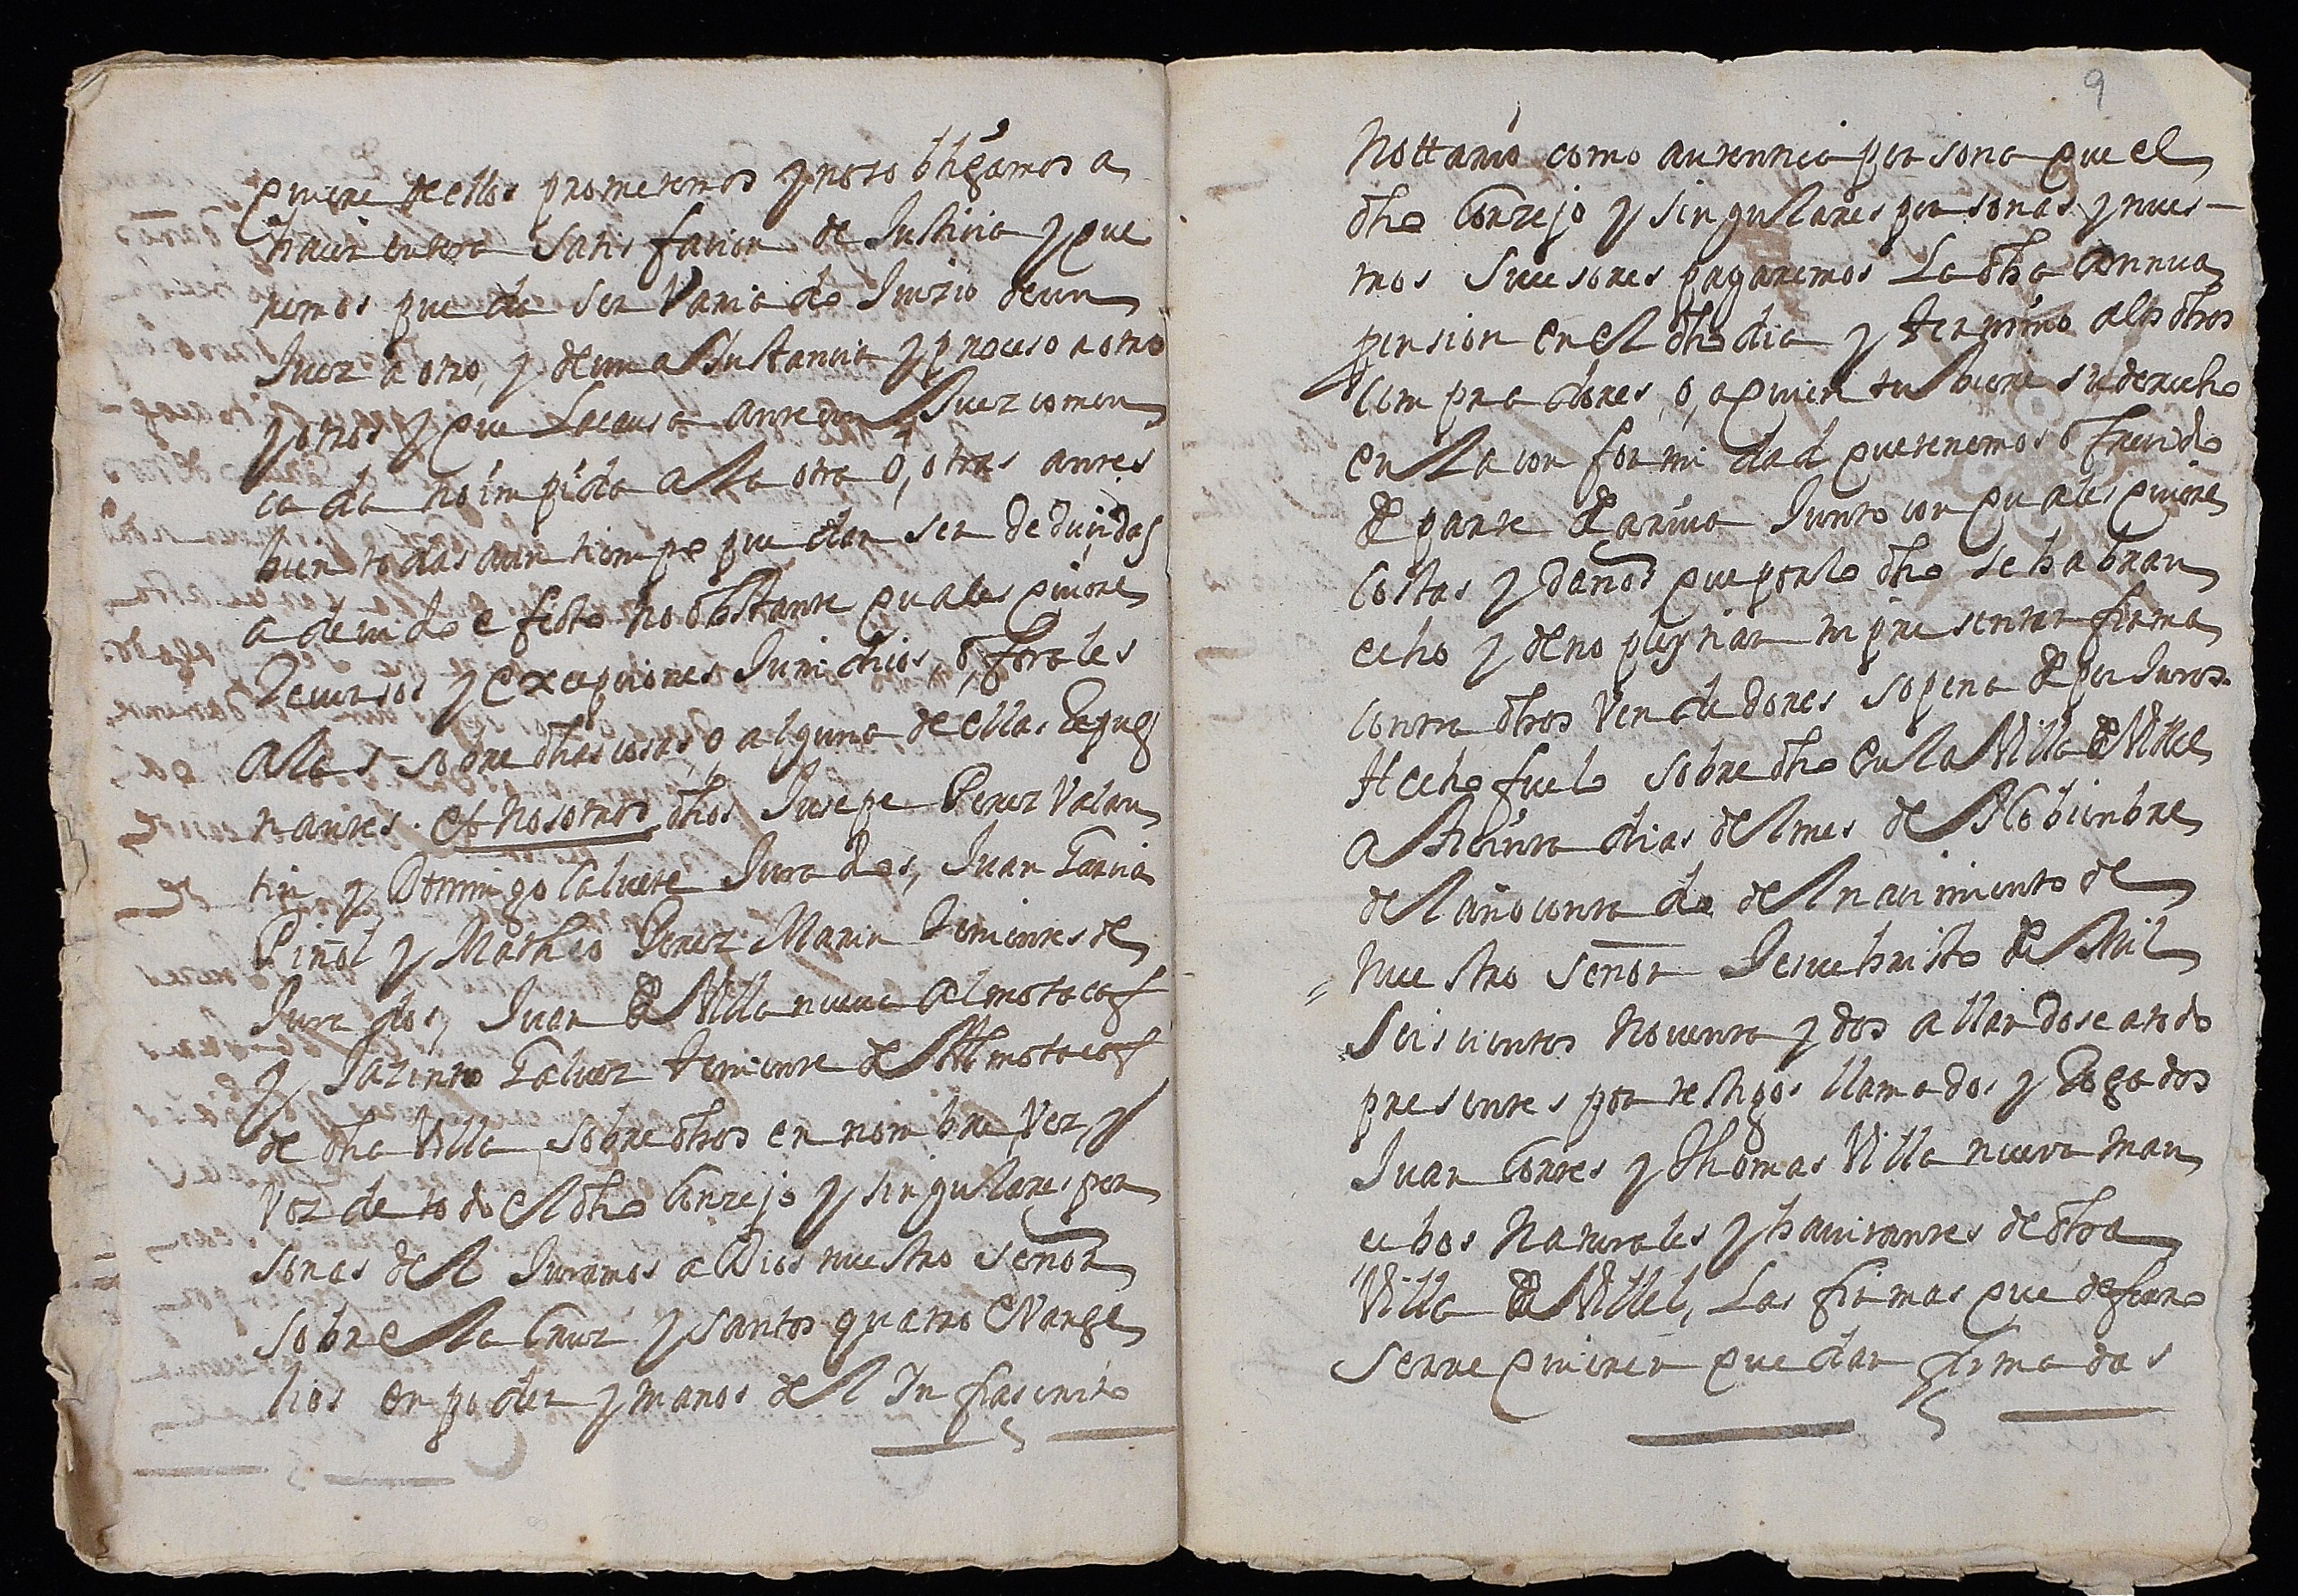 quiere de ellos prometemos y nos obligamos a
hacer entera satisfacion de Justicia y que
remos pueda ser Variado Juizio de un
Juez a otro, y de una Instancia y proceso a otro
y otros y que la causa ante un Juez comen
cada no impida a la otra o, otras antes
bien todas aun tiempo puedan ser deduzidas
a devido efecto no obstante quales quiere
Recursos y excepciones Juridicos, o, forales
a las sobre dhas cosas, o, alguna de ellas Repug
nantes. et nosotros dhos Jusepe Perez Valan
tin y Domingo Calvete Jurados, Juan Garcia
Piñol y Matheo Perez Marin tenientes de
Jurados, Juan de Villanueva Almotacaf
y Jazinto Galvez teniente de Almotacaf
de dha Villa sobre dhos en nombre, Vez, y
Voz de todo el dho Conzejo y singulares per
sonas del Juramos a Dios nuestro Señor
sobre la Cruz y santos quatro Evange
lios en poder y manos del Infrascrito
9
Nottario como autentica persona que el
dho Conzejo y singulares personas y nues-
tros sucesores pagaremos la dha Annua
pension en el dho dia y termino a los dhos
compradores, o, a quien tubiere su derecho
en la conformidad que tenemos ofrecido
de parte de arriva Junto con quales quiere
costas y daños que por lo dho se habran
echo y de no pleytiar ni presentar firma
contra dhos Vendedores sopena de perjuros
Hecho fue lo sobre dho en la Villa de Villel
a treinta dias del mes de Nobiembre
del año contado del nacimiento de
nuestro Señor Jesuchristo de Mil
seiscientos noventa y dos allandose a todo
presentes por testigos llamados y Rogados
Juan Cortes y Thomas Villanueva man
cebos naturales y havitantes de dha
Villa de Villel, Las firmas que de fuero
se requieren quedan firmadas